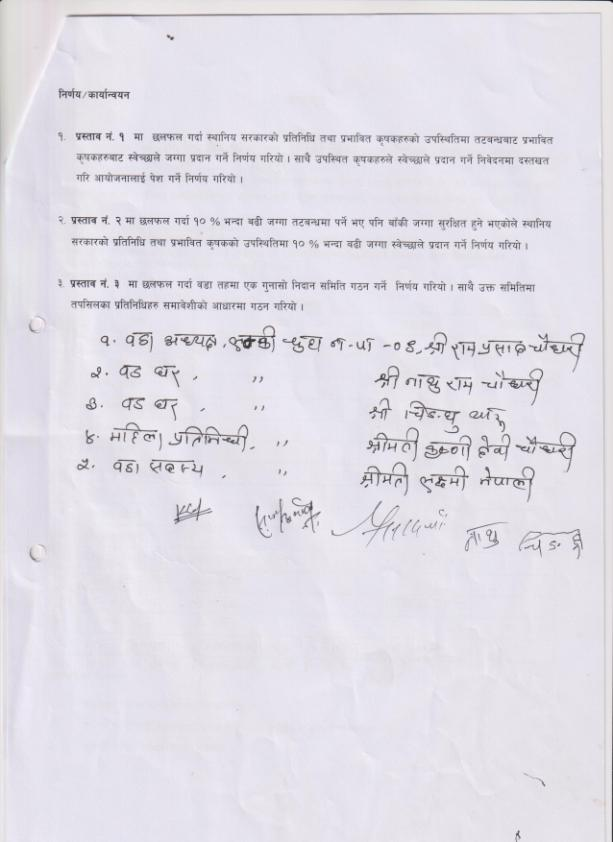 निर्णय/कार्यान्वयन
१. प्रस्ताव नं. १ मा छलफल गर्दा स्थानिय सरकारको प्रतिनिधि तथा प्रभावित कृषकहरुको उपस्थितिमा तटबन्धबाट प्रभावित
कृषकहरुबाट स्वेच्छाले जग्गा प्रदान गर्ने निर्णय गरियो । साथै उपस्थित कृषकहरुले स्वेच्छाले प्रदान गर्ने निवेदनमा दस्तखत
गरि आयोजनालाई पेश गर्ने निर्णय गरियो ।
२. प्रस्ताव नं. २ मा छलफल गर्दा १० % भन्दा बढी जग्गा तटबन्धमा पर्ने भए पनि बाँकी जग्गा सुरक्षित हुने भएकोले स्थानिय
सरकारको प्रतिनिधि तथा प्रभावित कृषकको उपस्थितिमा १० % भन्दा बढी जग्गा स्वेच्छाले प्रदान गर्ने निर्णय गरियो ।
३. प्रस्ताव नं. ३ मा छलफल गर्दा वडा तहमा एक गुनासो निदान समिति गठन गर्ने निर्णय गरियो । साथै उक्त समितिमा
तपसिलका प्रतिनिधिहरु समावेशीको आधारमा गठन गरियो ।
१. वडा अध्यक्ष, न.पा - श्री राम प्रसाद चौधरी
२. वड घर, ,, श्री नाथु राम चौधरी
३. वड घर, ,, श्री
४. महिला प्रतिनिधी, ,, श्रीमती देवी चौधरी
५. वडा सदस्य, ,, श्रीमती लक्ष्मी नेपाली
नाथु